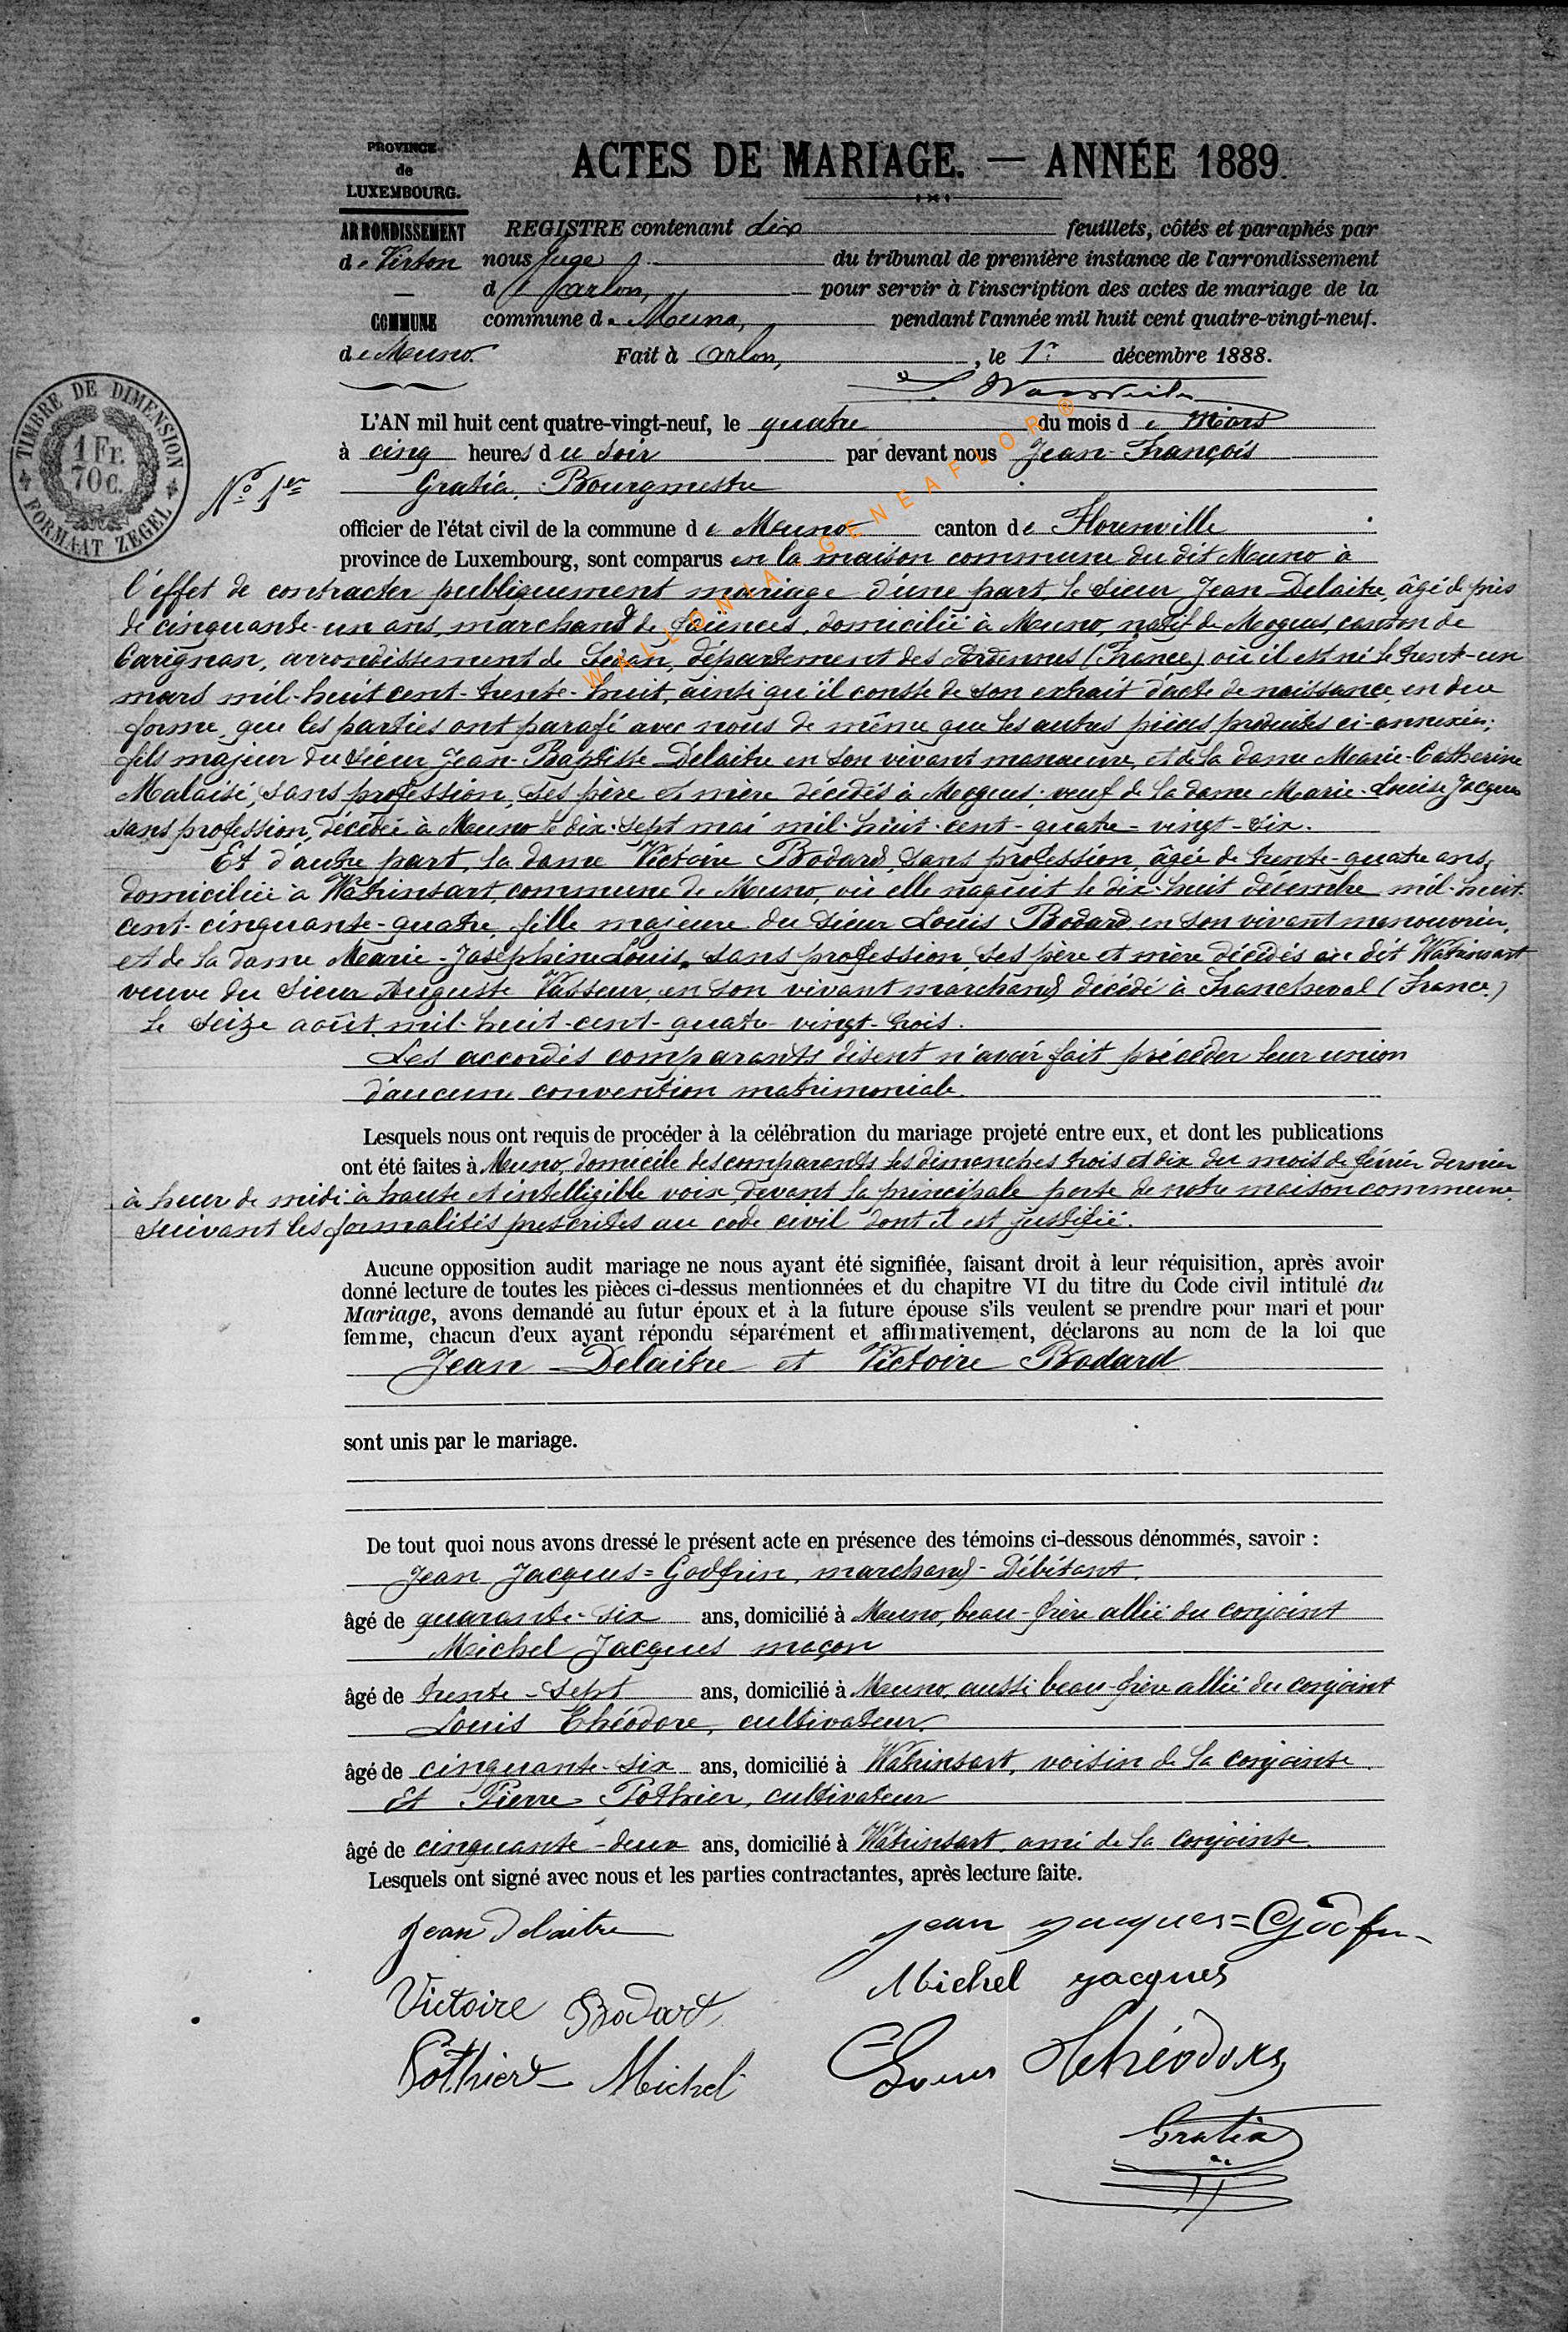 PROVINCE
de
LUXEMBOURG.
ACTES DE MARIAGE. — ANNÉE 1889.
ARRONDISSEMENT
de Virton
COMMUNE
de Muno.
REGISTRE contenant dix feuillets, côtés et paraphés par
nous Juge du tribunal de première instance de l'arrondissement
d'Arlon, pour servir à l'inscription des actes de mariage de la
commune de Muno, pendant l'année mil huit cent quatre-vingt-neuf.
Fait à Arlon, , le 1er décembre 1888.
TIMBRE DE DIMENSION
1 Fr.
70 C.
FORMAAT ZEGEL
No 1er
L'AN mil huit cent quatre-vingt-neuf, le quatre du mois de Mars
à cinq heures du soir par devant nous Jean-François
Gratia, Bourgmestre
officier de l'état civil de la commune de Muno canton de Florenville
province de Luxembourg, sont comparus en la maison commune du dit Muno à
l'effet de contracter publiquement mariage d'une part, le sieur Jean Delaitre, âgé de près
de cinquante-un ans, marchand de faïences, domicilié à Muno, natif de Mogues, canton de
Carignan, arrondissement de Sedan, département des Ardennes (France) où il est né le trent-un
mars mil-huit cent-trente-huit, ainsi qu'il conste de son extrait d'acte de naissance, en due
forme, que les parties ont parafé avec nous de même que les autres pièces produites ci-annexées;
fils majeur du sieur Jean-Baptiste Delaitre en son vivant manœuvre, et de la dame Marie-Catherine
Malaisé, sans profession, ses père et mère décédés à Mogues; veuf de la dame Marie-Louise Jacques
sans profession, décédée à Muno le dix-sept mai mil-huit-cent-quatre-vingt-six.
Et d'autre part, la dame Victoire Bodard, sans profession, âgée de trente-quatre ans,
domiciliée à Watrinsart, commune de Muno, où elle naquit le dix-huit décembre mil-huit-
cent-cinquante-quatre, fille majeure du sieur Louis Bodard, en son vivant manouvrier,
et de la dame Marie-Joséphine Louis, sans profession, ses père et mère décédés au dit Watrinsart
veuve du sieur Auguste Vasseur, en son vivant marchand décédé à Francheval (France)
le seize août mil-huit-cent-quatre-vingt-trois.
Les accordés comparants disent n'avoir fait précéder leur union
d'aucune convention matrimoniale.
Lesquels nous ont requis de procéder à la célébration du mariage projeté entre eux, et dont les publications
ont été faites à Muno, domicile des comparents les dimanches trois et dix du mois de février dernier
à heur de midi à haute et intelligible voix, devant la principale porte de notre maison commune
suivant les formalités prescrites au code civil dont il est justifié.
Aucune opposition audit mariage ne nous ayant été signifiée, faisant droit à leur réquisition, après avoir
donné lecture de toutes les pièces ci-dessus mentionnées et du chapitre VI du titre du Code civil intitulé du
Mariage, avons demandé au futur époux et à la future épouse s'ils veulent se prendre pour mari et pour
femme, chacun d'eux ayant répondu séparément et affirmativement, déclarons au nom de la loi que
Jean Delaitre et Victoire Bodard
sont unis par le mariage.
De tout quoi nous avons dressé le présent acte en présence des témoins ci-dessous dénommés, savoir :
Jean Jacques=Godfrin, marchand-Débitant.
âgé de quarante-six ans, domicilié à Muno, beau-frère allié du conjoint
Michel Jacques maçon
âgé de trente-sept ans, domicilié à Muno, aussi beau-frère allié du conjoint
Louis Théodore, cultivateur.
âgé de cinquante-six ans, domicilié à Watrinsart, voisin de la conjointe.
Et Pierre Pothier, cultivateur
âgé de cinquante-deux ans, domicilié à Watrinsart, ami de la conjointe.
Lesquels ont signé avec nous et les parties contractantes, après lecture faite.
Jean Delaitre
jean jacques=Godfrin
Victoire Bodart
Michel jacques
Pothier Michel
Louis Théodore
Gratia
WALLONIA GENEAFLOR ®